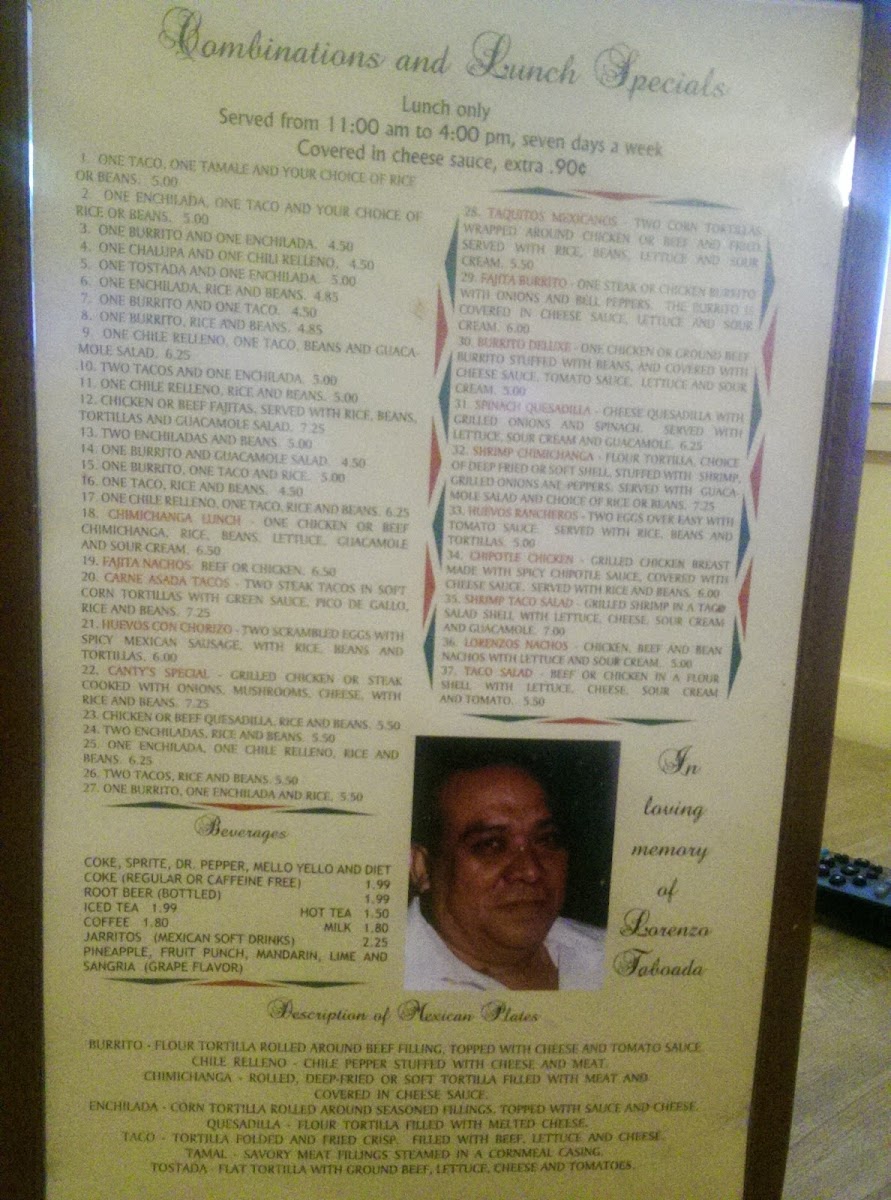 Combinations and Lunch Specials
Lunch only
Served from 11:00 am to 4:00 pm, seven days a week
Covered in cheese sauce, extra .90¢
1. ONE TACO, ONE TAMALE AND YOUR CHOICE OF RICE
OR BEANS. 5.00
2. ONE ENCHILADA, ONE TACO AND YOUR CHOICE OF
RICE OR BEANS. 5.00
3. ONE BURRITO AND ONE ENCHILADA. 4.50
4. ONE CHALUPA AND ONE CHILI RELLENO. 4.50
5. ONE TOSTADA AND ONE ENCHILADA. 5.00
6. ONE ENCHILADA, RICE AND BEANS. 4.85
7. ONE BURRITO AND ONE TACO. 4.50
8. ONE BURRITO, RICE AND BEANS. 4.85
9. ONE CHILE RELLENO, ONE TACO, BEANS AND GUACA-
MOLE SALAD. 6.25
10. TWO TACOS AND ONE ENCHILADA. 5.00
11. ONE CHILE RELLENO, RICE AND BEANS. 5.00
12. CHICKEN OR BEEF FAJITAS, SERVED WITH RICE, BEANS,
TORTILLAS AND GUACAMOLE SALAD. 7.25
13. TWO ENCHILADAS AND BEANS. 5.00
14. ONE BURRITO AND GUACAMOLE SALAD. 4.50
15. ONE BURRITO, ONE TACO AND RICE. 5.00
16. ONE TACO, RICE AND BEANS. 4.50
17. ONE CHILE RELLENO, ONE TACO, RICE AND BEANS. 6.25
18. CHIMICHANGA LUNCH - ONE CHICKEN OR BEEF
CHIMICHANGA, RICE, BEANS, LETTUCE, GUACAMOLE
AND SOUR CREAM. 6.50
19. FAJITA NACHOS: BEEF OR CHICKEN. 6.50
20. CARNE ASADA TACOS - TWO STEAK TACOS IN SOFT
CORN TORTILLAS WITH GREEN SAUCE, PICO DE GALLO,
RICE AND BEANS. 7.25
21. HUEVOS CON CHORIZO - TWO SCRAMBLED EGGS WITH
SPICY MEXICAN SAUSAGE, WITH RICE, BEANS AND
TORTILLAS. 6.00
22. CANTY'S SPECIAL - GRILLED CHICKEN OR STEAK
COOKED WITH ONIONS, MUSHROOMS, CHEESE, WITH
RICE AND BEANS. 7.25
23. CHICKEN OR BEEF QUESADILLA, RICE AND BEANS. 5.50
24. TWO ENCHILADAS, RICE AND BEANS. 5.50
25. ONE ENCHILADA, ONE CHILE RELLENO, RICE AND
BEANS. 6.25
26. TWO TACOS, RICE AND BEANS. 5.50
27. ONE BURRITO, ONE ENCHILADA AND RICE. 5.50
28. TAQUITOS MEXICANOS - TWO CORN TORTILLAS
WRAPPED AROUND CHICKEN OR BEEF AND FRIED.
SERVED WITH RICE, BEANS, LETTUCE AND SOUR
CREAM. 5.50
29. FAJITA BURRITO - ONE STEAK OR CHICKEN BURRITO
WITH ONIONS AND BELL PEPPERS. THE BURRITO IS
COVERED IN CHEESE SAUCE, LETTUCE AND SOUR
CREAM. 6.00
30. BURRITO DELUXE - ONE CHICKEN OR GROUND BEEF
BURRITO STUFFED WITH BEANS, AND COVERED WITH
CHEESE SAUCE, TOMATO SAUCE, LETTUCE AND SOUR
CREAM. 5.00
31. SPINACH QUESADILLA - CHEESE QUESADILLA WITH
GRILLED ONIONS AND SPINACH. SERVED WITH
LETTUCE, SOUR CREAM AND GUACAMOLE. 6.25
32. SHRIMP CHIMICHANGA - FLOUR TORTILLA, CHOICE
OF DEEP FRIED OR SOFT SHELL, STUFFED WITH SHRIMP,
GRILLED ONIONS ANE PEPPERS. SERVED WITH GUACA-
MOLE SALAD AND CHOICE OF RICE OR BEANS. 7.25
33. HUEVOS RANCHEROS - TWO EGGS OVER EASY WITH
TOMATO SAUCE. SERVED WITH RICE, BEANS AND
TORTILLAS. 5.00
34. CHIPOTLE CHICKEN - GRILLED CHICKEN BREAST
MADE WITH SPICY CHIPOTLE SAUCE, COVERED WITH
CHEESE SAUCE. SERVED WITH RICE AND BEANS. 6.00
35. SHRIMP TACO SALAD - GRILLED SHRIMP IN A TACO
SALAD SHELL WITH LETTUCE, CHEESE, SOUR CREAM
AND GUACAMOLE. 7.00
36. LORENZOS NACHOS - CHICKEN, BEEF AND BEAN
NACHOS WITH LETTUCE AND SOUR CREAM. 5.00
37. TACO SALAD - BEEF OR CHICKEN IN A FLOUR
SHELL WITH LETTUCE, CHEESE, SOUR CREAM
AND TOMATO. 5.50
Beverages
COKE, SPRITE, DR. PEPPER, MELLO YELLO AND DIET
COKE (REGULAR OR CAFFEINE FREE) 1.99
ROOT BEER (BOTTLED) 1.99
ICED TEA 1.99 HOT TEA 1.50
COFFEE 1.80 MILK 1.80
JARRITOS (MEXICAN SOFT DRINKS) 2.25
PINEAPPLE, FRUIT PUNCH, MANDARIN, LIME AND
SANGRIA (GRAPE FLAVOR)
In
loving
memory
of
Lorenzo
Taboada
Description of Mexican Plates
BURRITO - FLOUR TORTILLA ROLLED AROUND BEEF FILLING, TOPPED WITH CHEESE AND TOMATO SAUCE.
CHILE RELLENO - CHILE PEPPER STUFFED WITH CHEESE AND MEAT.
CHIMICHANGA - ROLLED, DEEP-FRIED OR SOFT TORTILLA FILLED WITH MEAT AND
COVERED IN CHEESE SAUCE.
ENCHILADA - CORN TORTILLA ROLLED AROUND SEASONED FILLINGS, TOPPED WITH SAUCE AND CHEESE.
QUESADILLA - FLOUR TORTILLA FILLED WITH MELTED CHEESE.
TACO - TORTILLA FOLDED AND FRIED CRISP. FILLED WITH BEEF, LETTUCE AND CHEESE.
TAMAL - SAVORY MEAT FILLINGS STEAMED IN A CORNMEAL CASING.
TOSTADA - FLAT TORTILLA WITH GROUND BEEF, LETTUCE, CHEESE AND TOMATOES.